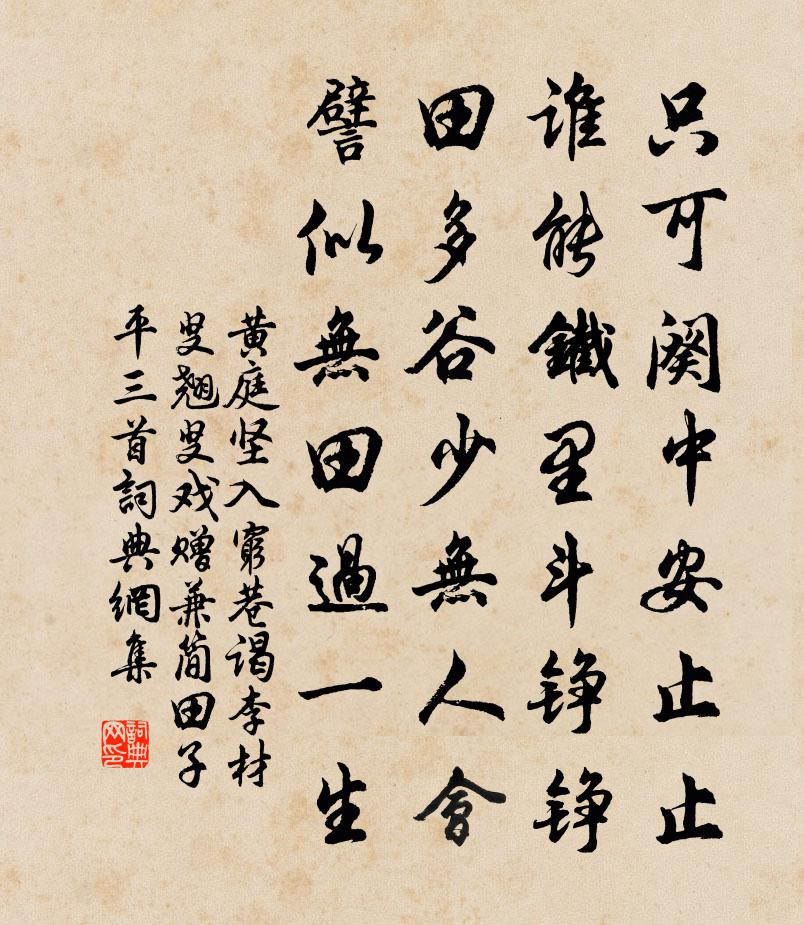 只可阕中安止止
谁能鐵里斗铮铮
田多谷少無人會
譬似無田過一生
黄庭坚入窮巷谒李材
叟翘叟戏赠兼简田子
平三首詞典網集
詞典网印